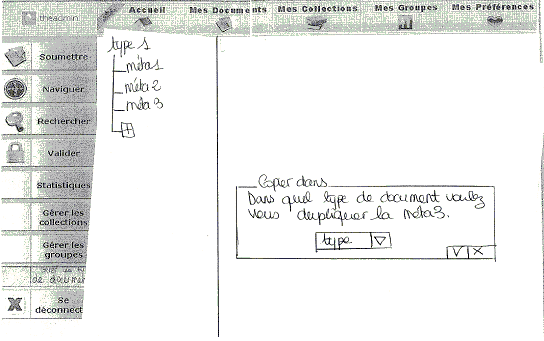 theadmin
Accueil
Mes Documents
Mes Collections
Mes Groupes
Mes Préférences
Soumettre
Naviguer
Rechercher
Valider
Statistiques
Gérer les
collections
Gérer les
groupes
Se
déconnect
type 1
méta1
méta 2
méta 3
Copier dans
Dans quel type de document voulez
vous dupliquer la méta3.
type
V X